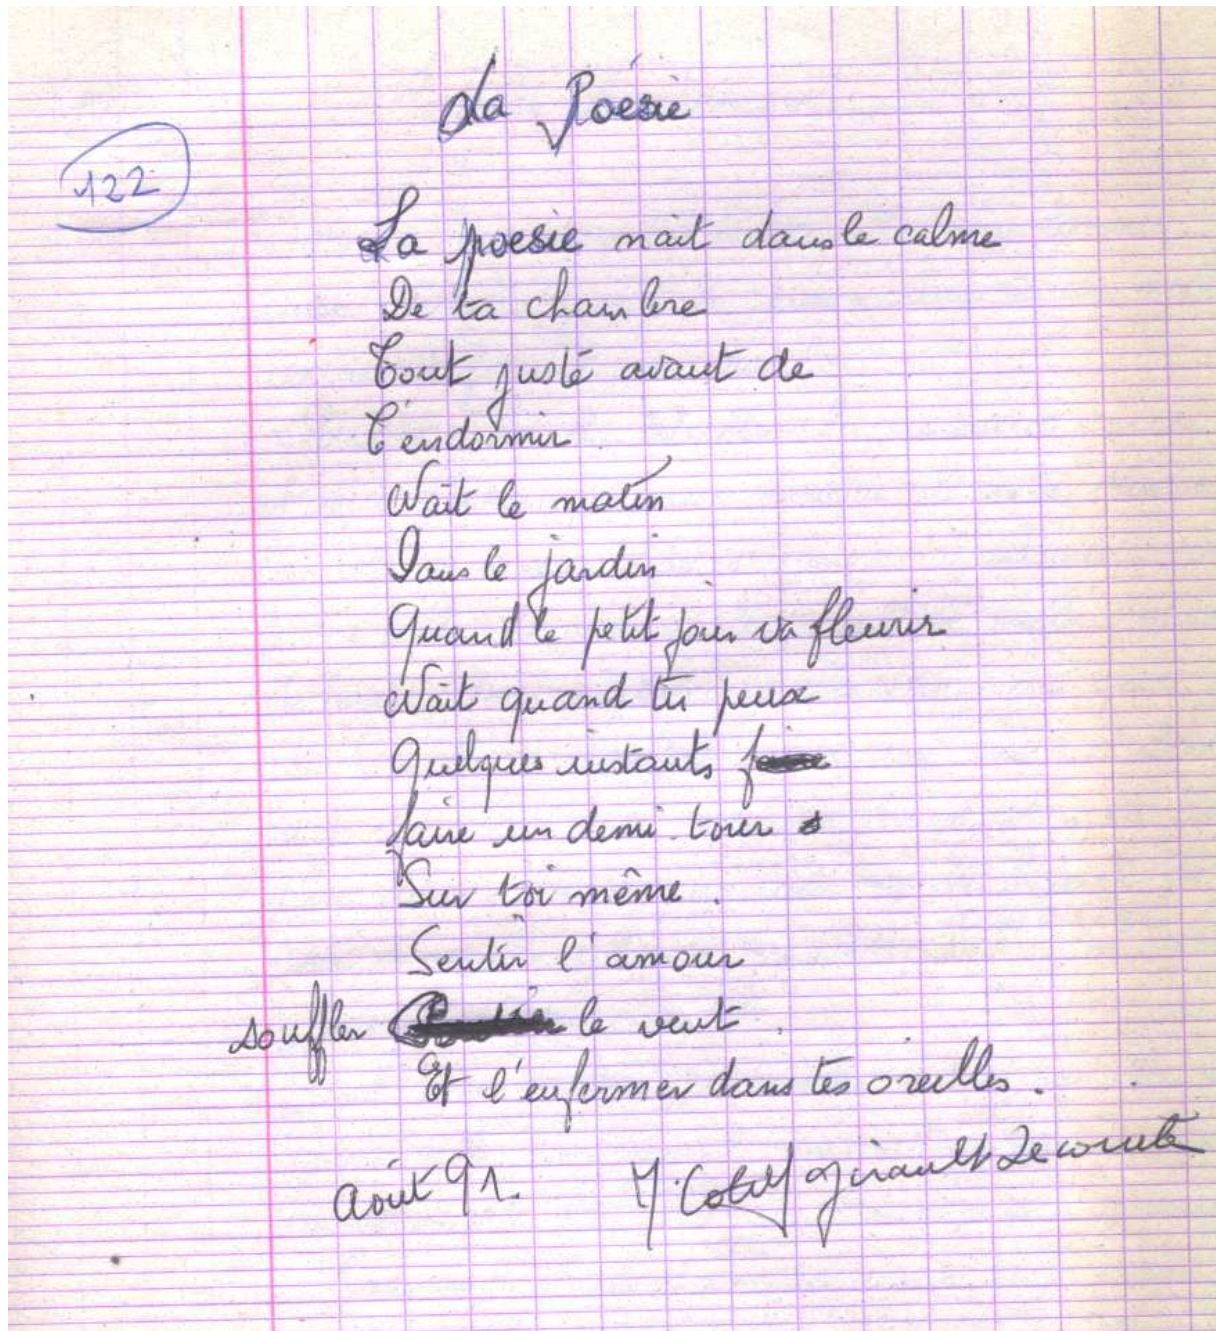 La Poésie
122
La poesie nait dans le calme
De ta chambre
Tout juste avant de
T'endormir
Nait le matin
Dans le jardin
Quand le petit jour va fleurir
Nait quand tu peux
Quelques instants
faire un demi-tour
Sur toi même.
Sentir l'amour
souffler le vent.
Et l'enfermer dans tes oreilles.
Août 91. Girault Lecomte